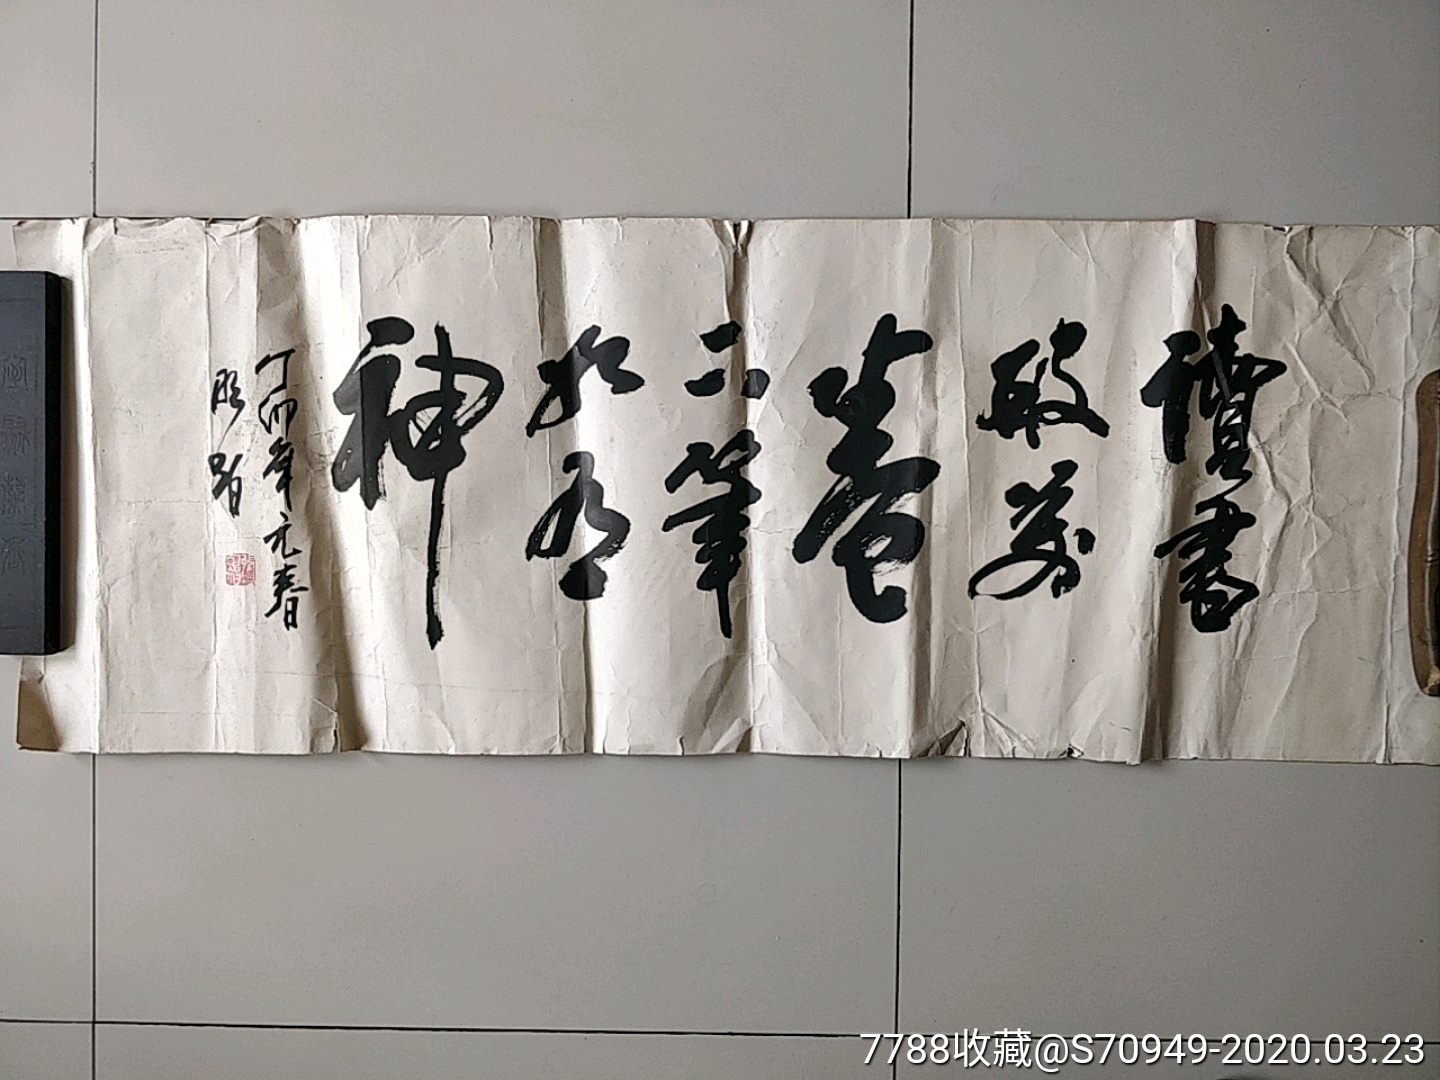 讀書
破萬
卷
下筆
如有
神
丁卯年元春
7788收藏@S70949-2020.03.23